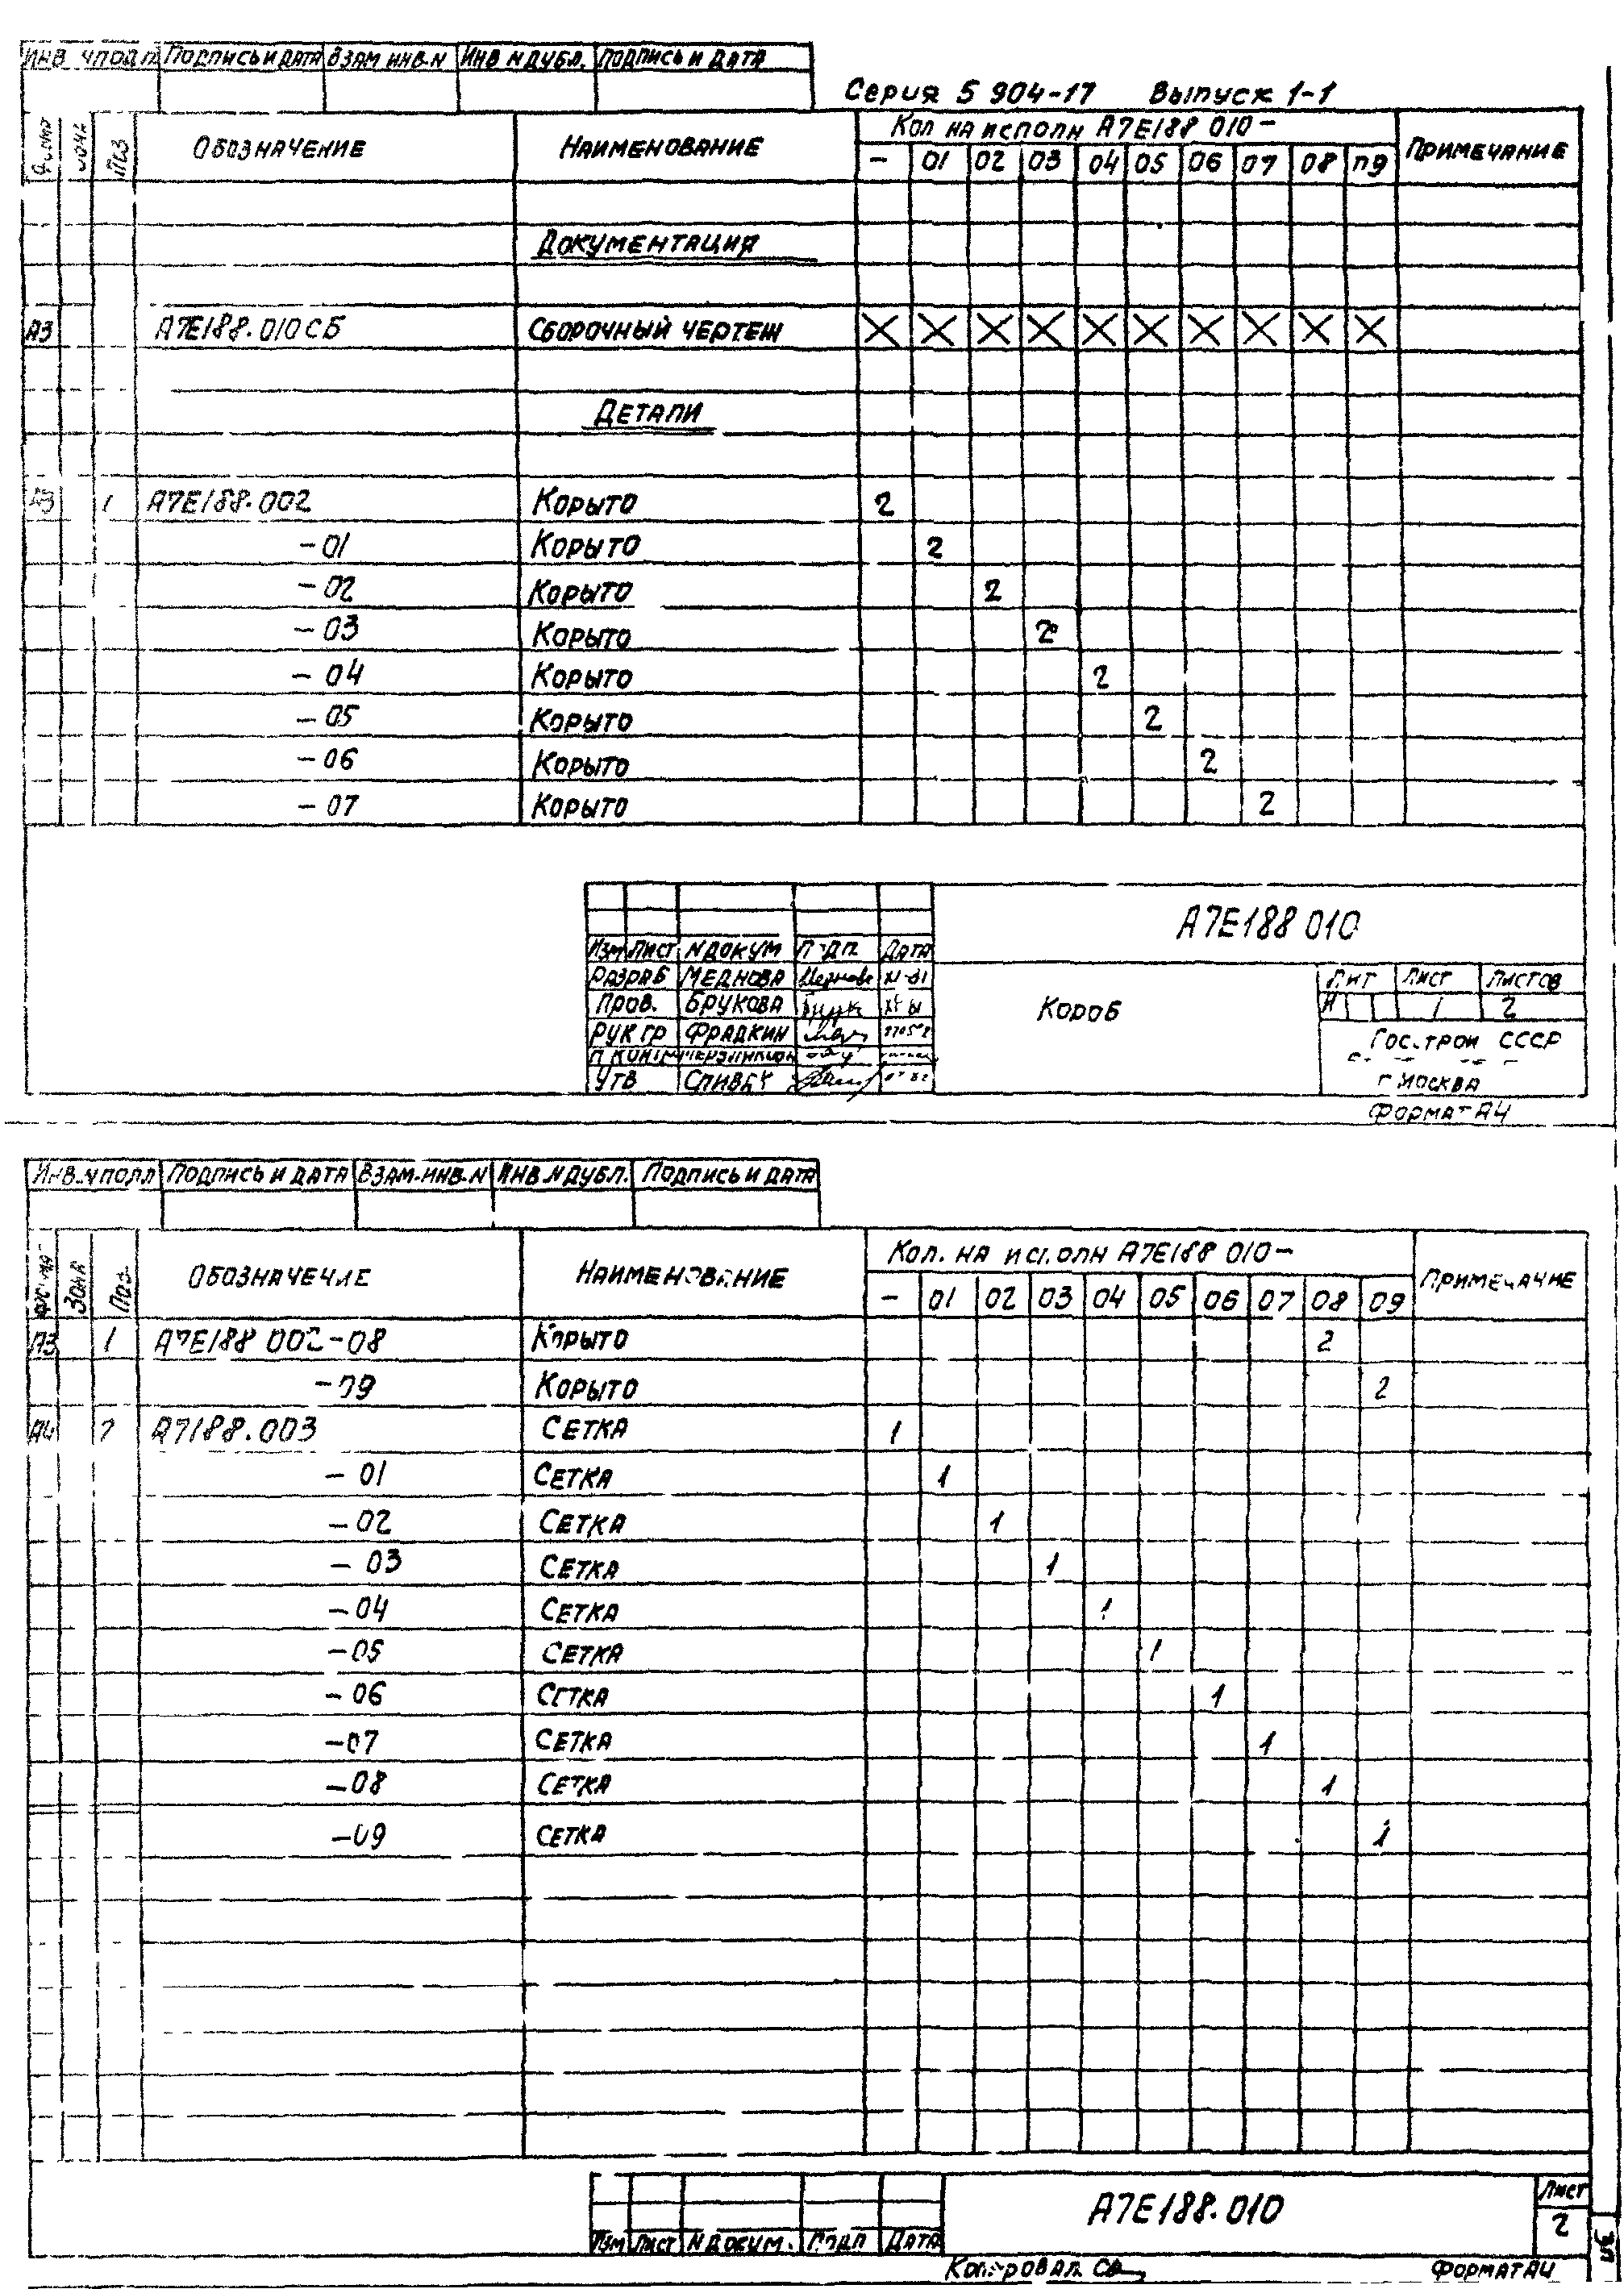 ИНВ. N ПОДЛ ПОДПИСЬ И ДАТА ВЗАМ ИНВ. N ИНВ N ДУБЛ. ПОДПИСЬ И ДАТА
Серия 5 904-17 Выпуск 1-1
Поз ОБОЗНАЧЕНИЕ НАИМЕНОВАНИЕ Кол на исполн А7Е188 010 - ПРИМЕЧАНИЕ
- 01 02 03 04 05 06 07 08 09
ДОКУМЕНТАЦИЯ
А3 А7Е188.010СБ СБОРОЧНЫЙ ЧЕРТЕЖ X X X X X X X X X X
ДЕТАЛИ
А3 1 А7Е188.002 КОРЫТО 2
-01 КОРЫТО 2
-02 КОРЫТО 2
-03 КОРЫТО 2
-04 КОРЫТО 2
-05 КОРЫТО 2
-06 КОРЫТО 2
-07 КОРЫТО 2
А7Е188 010
ИЗМ ЛИСТ N ДОКУМ ПОДП ДАТА
РАЗРАБ МЕДНОВА
ПРОВ. БРУКОВА
РУК ГР ФРАДКИН
УТВ СПИВАК
КОРОБ
ЛИТ ЛИСТ ЛИСТОВ
И 1 2
ГОССТРОЙ СССР
Г МОСКВА
ФОРМАТ А4
ИНВ. N ПОДЛ ПОДПИСЬ И ДАТА ВЗАМ. ИНВ. N ИНВ N ДУБЛ. ПОДПИСЬ И ДАТА
ЗОНА ПОЗ. ОБОЗНАЧЕНИЕ НАИМЕНОВАНИЕ Кол. на исполн А7Е188 010 - ПРИМЕЧАНИЕ
- 01 02 03 04 05 06 07 08 09
А3 1 А7Е188 002-08 КОРЫТО 2
-09 КОРЫТО 2
А4 2 А7188.003 СЕТКА 1
-01 СЕТКА 1
-02 СЕТКА 1
-03 СЕТКА 1
-04 СЕТКА 1
-05 СЕТКА 1
-06 СЕТКА 1
-07 СЕТКА 1
-08 СЕТКА 1
-09 СЕТКА 1
А7Е188.010
ЛИСТ
2
ИЗМ ЛИСТ N ДОКУМ. ПОДП ДАТА
КОПИРОВАЛ ФОРМАТ А4